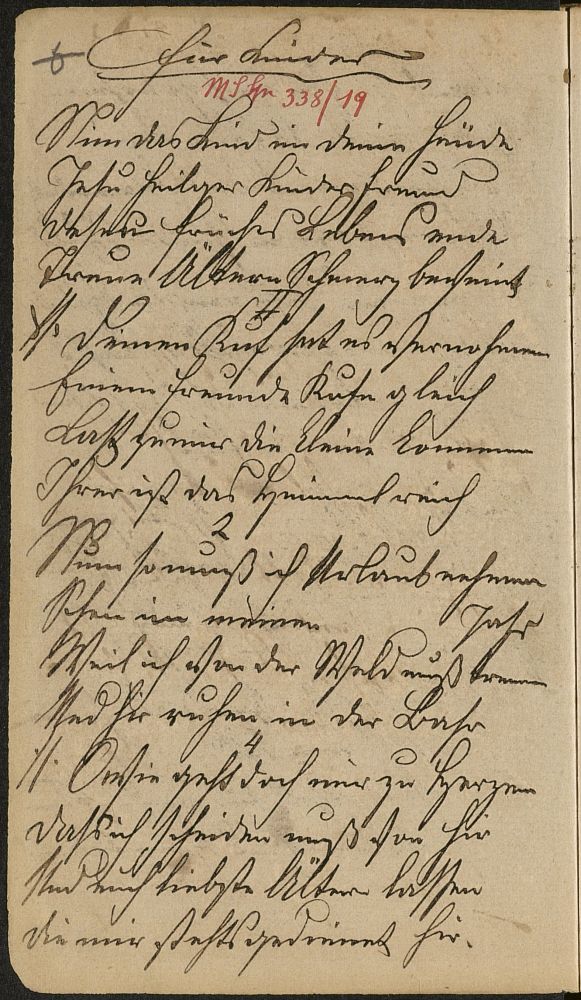 6 Für Kinder
MS Hn 338/19
Nim das Kind in deine Hände
Jesu heilger Kinder freund
Deßen frühes Lebens ende
Treuer Ältern Schmerz beweint
II
//: Deinen Ruf hat es vernohmen
Freunde Rufe gleich
Laßt zu mir die kleine kommen
Ihrer ist das Himmelreich
2
Nun so muß ich Urlaub nehmen
Schon in meinen Jahr
Weil ich von der Weld muß
Und hir ruhen in der Bahr
4
//: O wie geht doch mir zu Herzen
Daß ich scheiden muß von hir
Und euch liebste Ältern lassen
Die mir stehts gedienet hir.